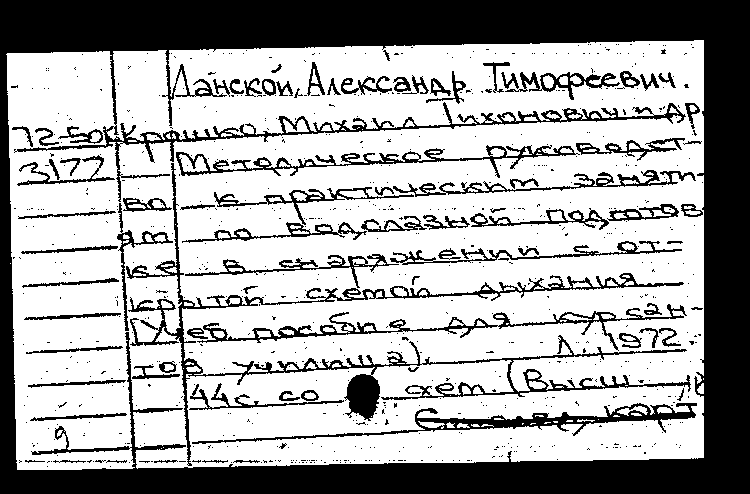 Ланской, Александр Тимофеевич.
72-50к Крошко, Михаил Тихонович и др
3177 Методическое руководст-
во к практическим заняти-
ям по водолазной подготов
ке в снаряжении с от-
крытой схемой дыхания.
(Учеб. пособие для курсан-
тов училища). Л., 1972.
44с. со схем. (Высш.
карт.
9